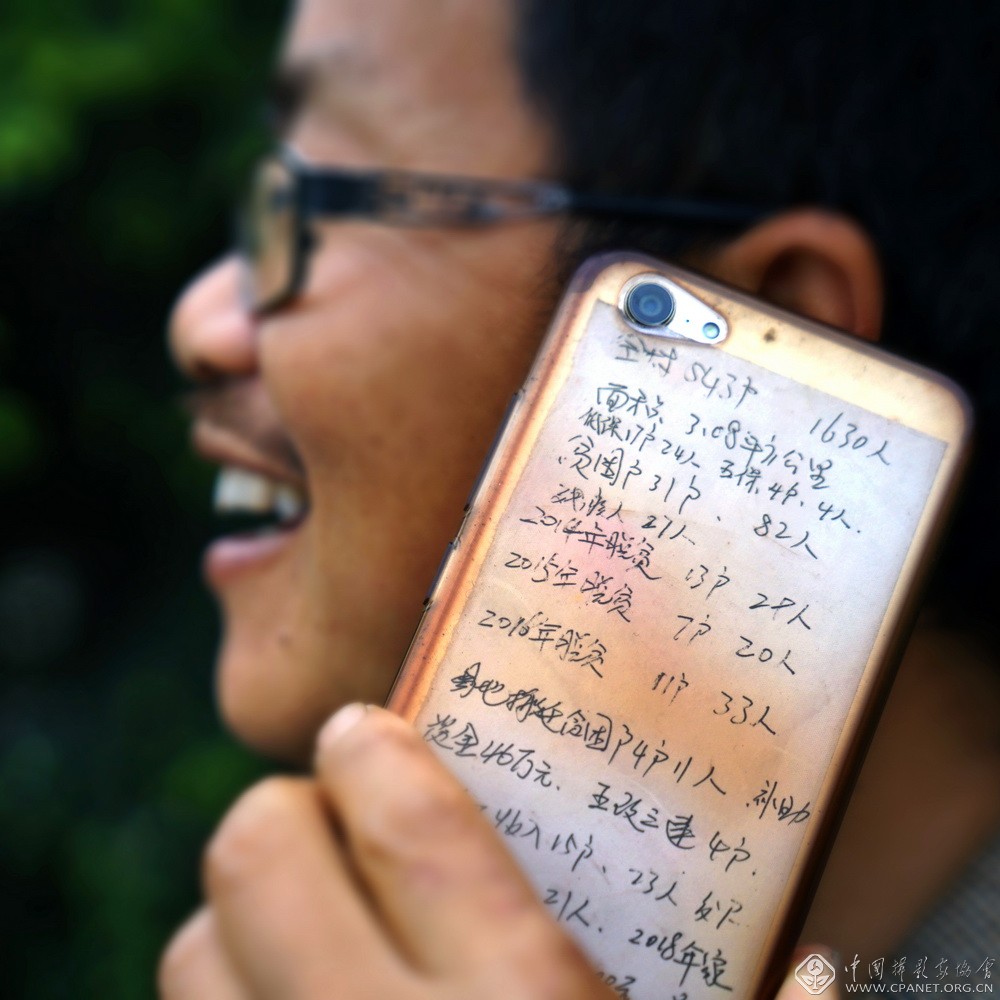 全村 543户 1630人
面积: 3.08平方公里
低保17户24人 五保4户、4人.
贫困户31户、82人
残疾人 21人
2014年脱贫 13户 29人
2015年脱贫 7户 20人
2016年脱贫 11户 33人
易地搬迁贫困户4户11人 补助
资金46万元. 五改三建 4户.
纳入15户、23人
21人. 2018年
中国摄影家协会
WWW.CPANET.ORG.CN